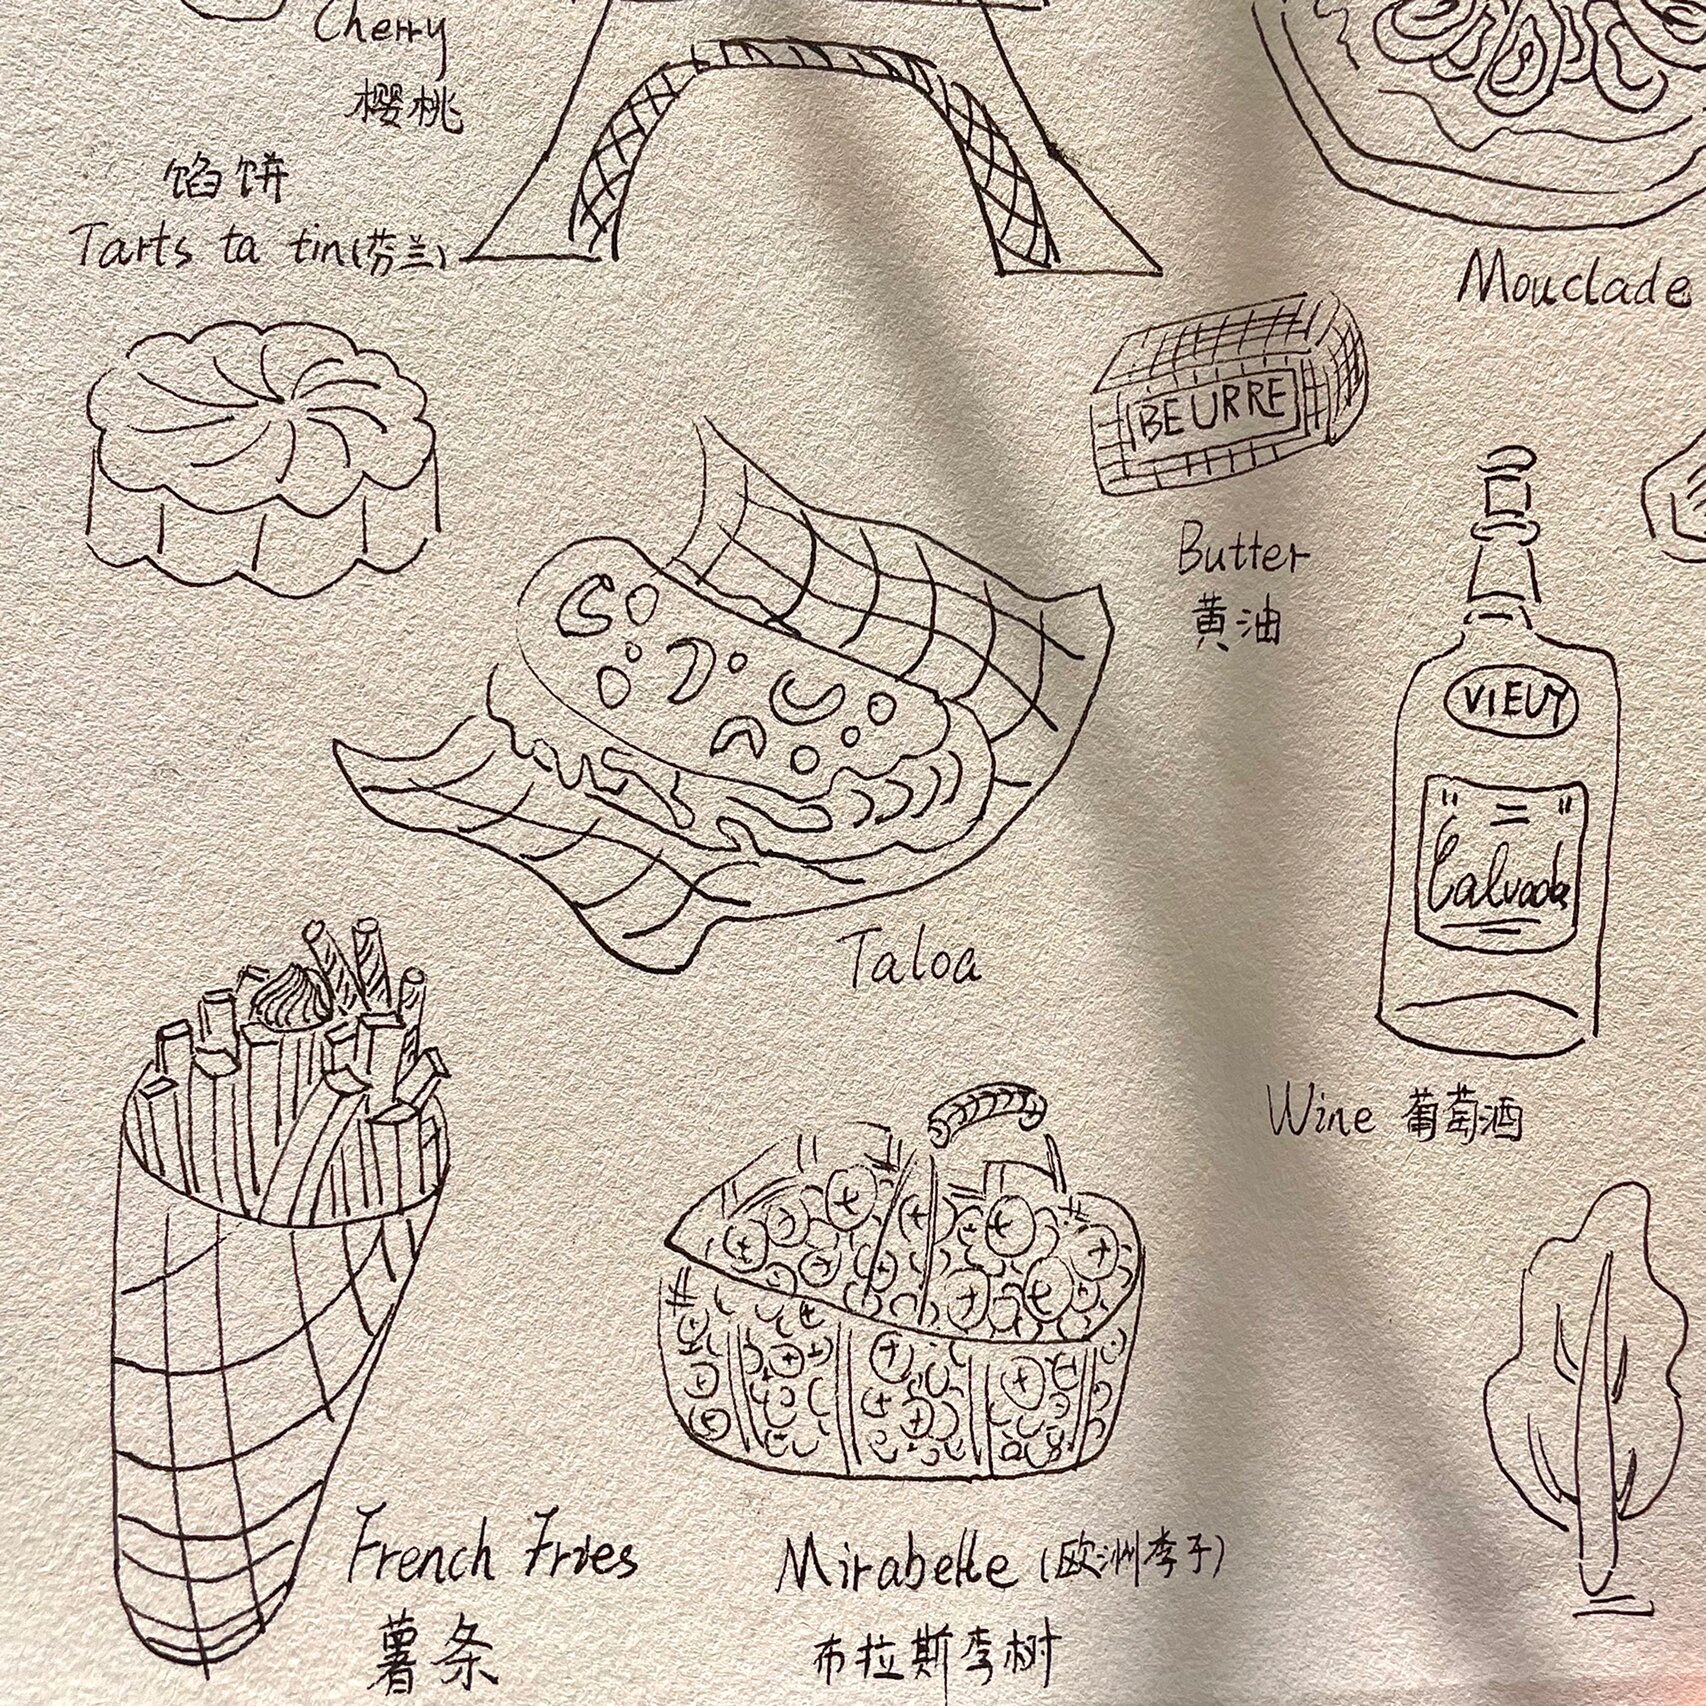 Cherry
樱桃
馅饼
Tarts ta tin(芬兰)
Mouclade
BEURRE
Butter
黄油
VIEUX
Calvados
Taloa
Wine 葡萄酒
French Fries
薯条
Mirabelle (欧洲李子)
布拉斯李树